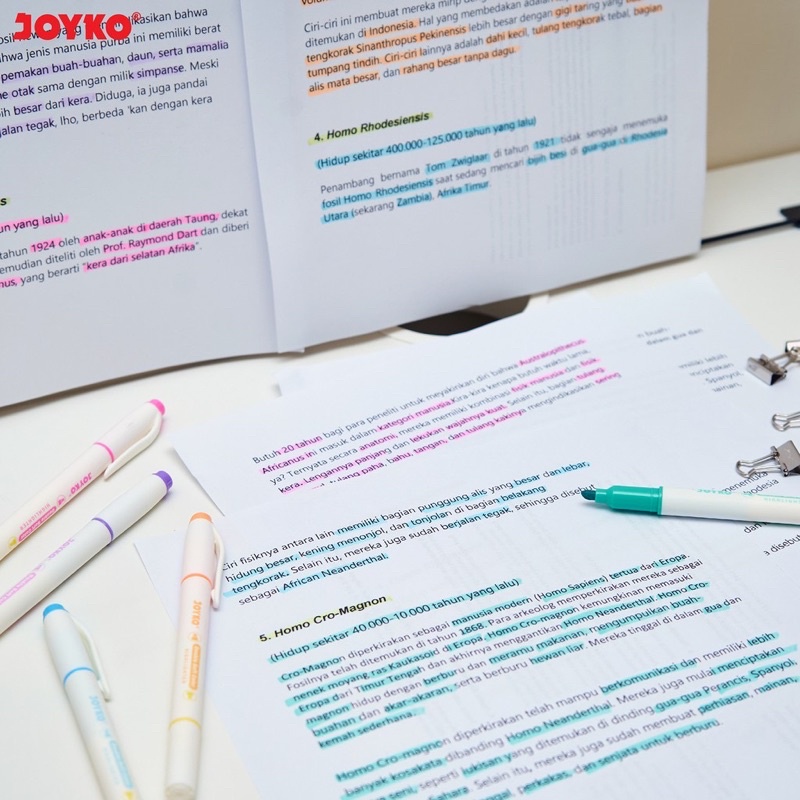 JOYKO
kasikan bahwa
hwa jenis manusia purba ini memiliki berat
pemakan buah-buahan, daun, serta mamalia
otak sama dengan milik simpanse. Meski
ih besar dari kera. Diduga, ia juga pandai
jalan tegak, lho, berbeda 'kan dengan kera
un yang lalu)
tahun 1924 oleh anak-anak di daerah Taung, dekat
emudian diteliti oleh Prof. Raymond Dart dan diberi
nus, yang berarti "kera dari selatan Afrika".
Ciri-ciri ini membuat mereka mirip
ditemukan di Indonesia. Hal yang membedakan adalah
tengkorak Sinanthropus Pekinensis lebih besar dengan gigi taring yang
tumpang tindih. Ciri-ciri lainnya adalah dahi kecil, tulang tengkorak tebal, bagian
alis mata besar, dan rahang besar tanpa dagu.
4. Homo Rhodesiensis
(Hidup sekitar 400.000-125.000 tahun yang lalu)
Penambang bernama Tom Zwiglaar di tahun 1921 tidak sengaja menemuka
fosil Homo Rhodesiensis saat sedang mencari bijih besi di gua-gua di Rhodesia
Utara (sekarang Zambia), Afrika Timur.
Butuh 20 tahun bagi para peneliti untuk meyakinkan diri bahwa Australopithecus
Africanus ini masuk dalam kategori manusia. Kira-kira kenapa butuh waktu lama,
ya? Ternyata secara anatomi, mereka memiliki kombinasi fisik manusia dan fisik
kera. Lengannya panjang dan lekukan wajahnya kuat. Selain itu, bagian tulang
tulang paha, bahu, tangan, dan tulang kakinya mengindikasikan sering
n buah-
dalam gua dan
miliki lebih
nciptakan
Spanyol,
Ciri fisiknya antara lain memiliki bagian punggung alis yang besar dan lebar,
hidung besar, kening menonjol, dan tonjolan di bagian belakang
tengkorak. Selain itu, mereka juga sudah berjalan tegak, sehingga disebut
sebagai African Neanderthal.
5. Homo Cro-Magnon
(Hidup sekitar 40.000-10.000 tahun yang lalu)
Cro-Magnon diperkirakan sebagai manusia modern (Homo Sapiens) tertua dari Eropa.
Fosilnya telah ditemukan di tahun 1868. Para arkeolog memperkirakan mereka sebagai
nenek moyang ras Kaukasoid di Eropa. Homo Cro-magnon kemungkinan memasuki
Eropa dari Timur Tengah dan akhirnya menggantikan Homo Neanderthal. Homo Cro-
magnon hidup dengan berburu dan meramu makanan, mengumpulkan buah-
buahan dan akar-akaran, serta berburu hewan liar. Mereka tinggal di dalam gua dan
kemah sederhana.
Homo Cro-magnon diperkirakan telah mampu berkomunikasi dan memiliki lebih
banyak kosakata dibanding Homo Neanderthal. Mereka juga mulai menciptakan
seni, seperti lukisan yang ditemukan di dinding gua-gua Perancis, Spanyol,
Sahara. Selain itu, mereka juga sudah membuat perhiasan, mainan,
perkakas, dan senjata untuk berburu.
disebut
JOYKO
JOYKO
JOYKO